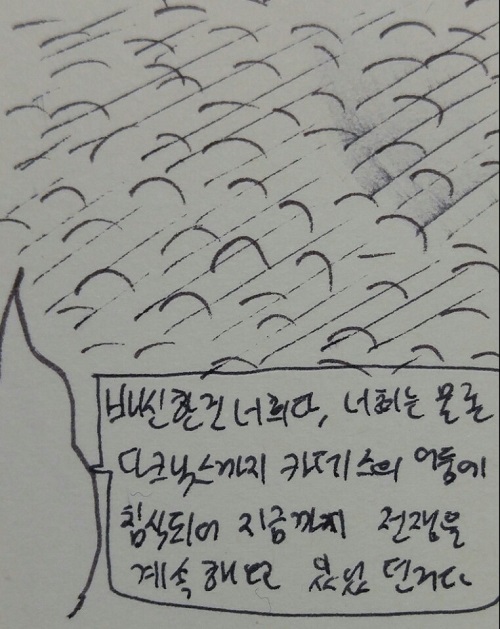 배신한건 너희다, 너희는 물론
다크닉스까지 카데기스의 어둠에
침식되어 지금까지 전쟁을
계속해오고 있었던거다.